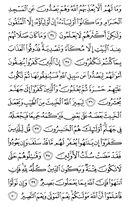 وَمَا لَهُمْ أَلَّا يُعَذِّبَهُمُ ٱللَّهُ وَهُمْ يَصُدُّونَ عَنِ ٱلْمَسْجِدِ
ٱلْحَرَامِ وَمَا كَانُوٓا۟ أَوْلِيَآءَهُۥٓ إِنْ أَوْلِيَآؤُهُۥٓ إِلَّا ٱلْمُتَّقُونَ
وَلَٰكِنَّ أَكْثَرَهُمْ لَا يَعْلَمُونَ ٣٤ وَمَا كَانَ صَلَاتُهُمْ
عِندَ ٱلْبَيْتِ إِلَّا مُكَآءً وَتَصْدِيَةً فَذُوقُوا۟ ٱلْعَذَابَ
بِمَا كُنتُمْ تَكْفُرُونَ ٣٥ إِنَّ ٱلَّذِينَ كَفَرُوا۟ يُنفِقُونَ
أَمْوَٰلَهُمْ لِيَصُدُّوا۟ عَن سَبِيلِ ٱللَّهِ فَسَيُنفِقُونَهَا
ثُمَّ تَكُونُ عَلَيْهِمْ حَسْرَةً ثُمَّ يُغْلَبُونَ وَٱلَّذِينَ كَفَرُوٓا۟
إِلَىٰ جَهَنَّمَ يُحْشَرُونَ ٣٦ لِيَمِيزَ ٱللَّهُ ٱلْخَبِيثَ مِنَ ٱلطَّيِّبِ
وَيَجْعَلَ ٱلْخَبِيثَ بَعْضَهُۥ عَلَىٰ بَعْضٍ فَيَرْكُمَهُۥ جَمِيعًا
فَيَجْعَلَهُۥ فِى جَهَنَّمَ أُو۟لَٰٓئِكَ هُمُ ٱلْخَٰسِرُونَ ٣٧
قُل لِّلَّذِينَ كَفَرُوٓا۟ إِن يَنتَهُوا۟ يُغْفَرْ لَهُم مَّا قَدْ سَلَفَ وَإِن يَعُودُوا۟
فَقَدْ مَضَتْ سُنَّتُ ٱلْأَوَّلِينَ ٣٨ وَقَٰتِلُوهُمْ حَتَّىٰ
لَا تَكُونَ فِتْنَةٌ وَيَكُونَ ٱلدِّينُ كُلُّهُۥ لِلَّهِ
فَإِنِ ٱنتَهَوْا۟ فَإِنَّ ٱللَّهَ بِمَا يَعْمَلُونَ بَصِيرٌ ٣٩ وَإِن تَوَلَّوْا۟
فَٱعْلَمُوٓا۟ أَنَّ ٱللَّهَ مَوْلَىٰكُمْ نِعْمَ ٱلْمَوْلَىٰ وَنِعْمَ ٱلنَّصِيرُ ٤٠